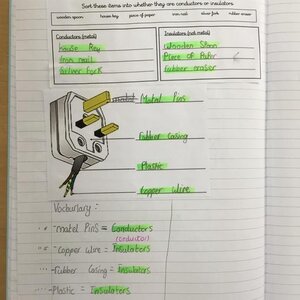 Sort these items into whether they are conductors or insulators
wooden spoon house key piece of paper iron nail silver fork rubber eraser
Conductors (metal) Insulators (not metal)
House Key Wooden Spoon
Iron nail Piece of Paper
Silver Fork Rubber eraser
Matel Pins
Rubber Casing
Plastic
Copper Wire
Vocburlary :
matel Pins = Conductors
(Conductor)
Copper wire = Insulators
Rubber Casing = Insulators
Plastic = Insulators